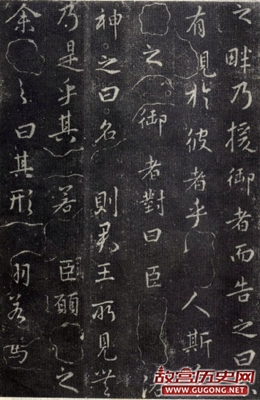 之畔乃援御者而告之曰
有見於彼者乎人斯
之御者對曰臣
神之曰名則君王所見無
乃是乎其若臣願之
余之曰其形若
故宫历史网
www.GUGONG.net